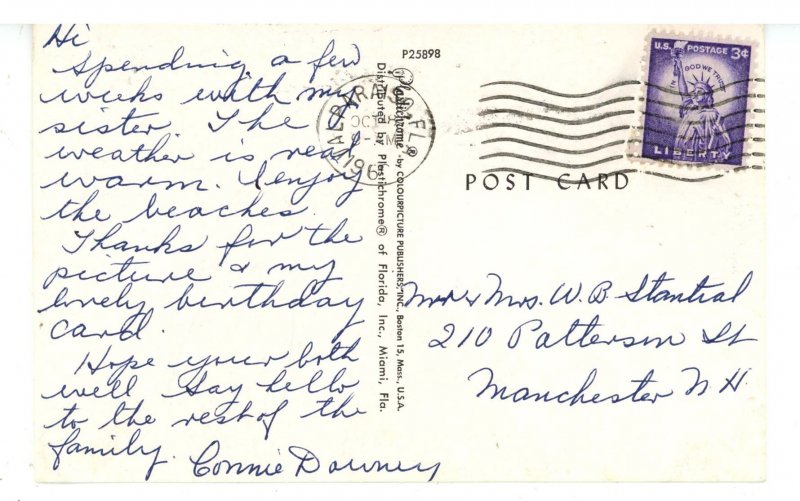 Hi
spending a few
weeks with my
sister. The
weather is real
warm. I enjoy
the beaches.
Thanks for the
picture & my
lovely birthday
card.
Hope your both
well Say hello
to the rest of the
family.
Connie Downey
P25898
Plastichrome® by COLOURPICTURE PUBLISHERS, INC., Boston 15, Mass., U.S.A.
Distributed by Plastichrome® of Florida, Inc., Miami, Fla.
OCT
196
U.S. POSTAGE 3¢
IN GOD WE TRUST
LIBERTY
POST CARD
Mr & Mrs. W. B. Stantial
210 Patterson St
Manchester N H